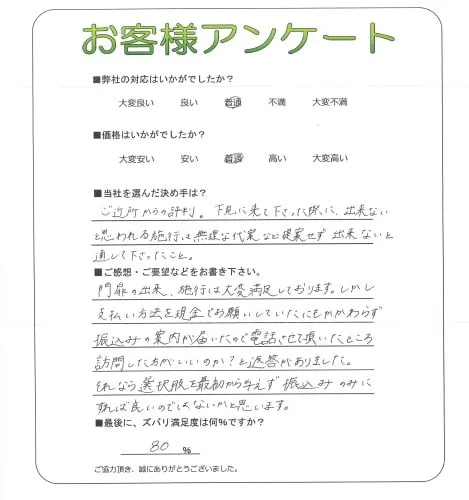 お客様アンケート
■弊社の対応はいかがでしたか？
大変良い 良い 普通 不満 大変不満
■価格はいかがでしたか？
大変安い 安い 普通 高い 大変高い
■当社を選んだ決め手は？
ご近所からの評判。下見に来て下さった際に、出来ない
と思われる施行は無理な代案など提案せず出来ないと
通して下さったこと。
■ご感想・ご要望などをお書き下さい。
門扉の出来、施行は大変満足しております。しかし
支払い方法を現金でお願いしていたにもかかわらず
振込みの案内が届いたので電話させて頂いたところ
訪問した方がいいのか？と返答がありました。
それなら選択肢を最初から与えず振込みのみに
すれば良いのではないかと思います。
■最後に、ズバリ満足度は何%ですか？
80 %
ご協力頂き、誠にありがとうございました。